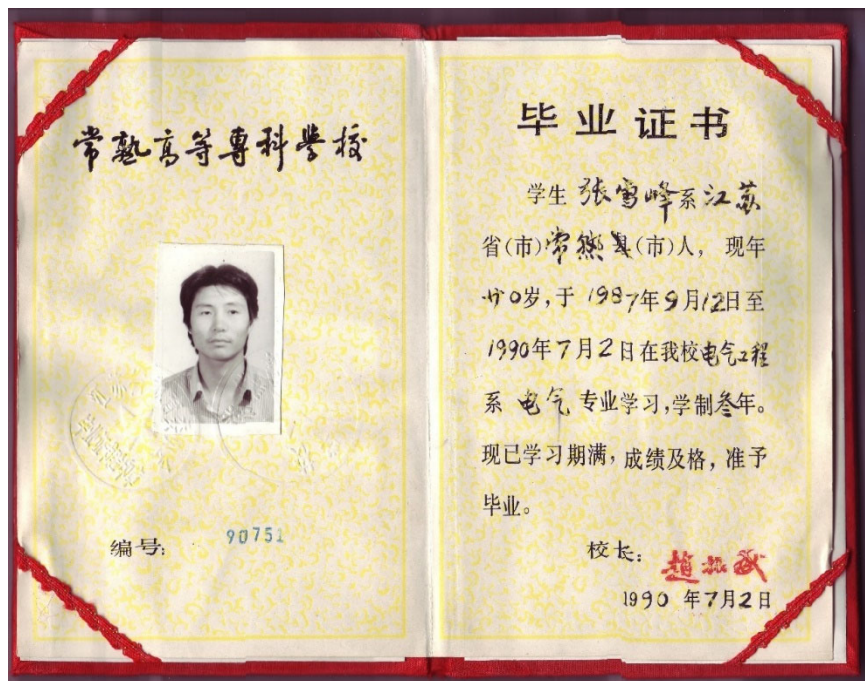 常熟高等專科學校
编号:
90751
毕业证书
学生 张雪峰系江苏
省(市)常熟县(市)人, 现年
廿0岁,于 1987年9月12日至
1990年7月2日在我校电气工程
系 电气 专业学习,学制叁年。
现已学习期满,成绩及格,准予
毕业。
校长:
1990 年7月2日